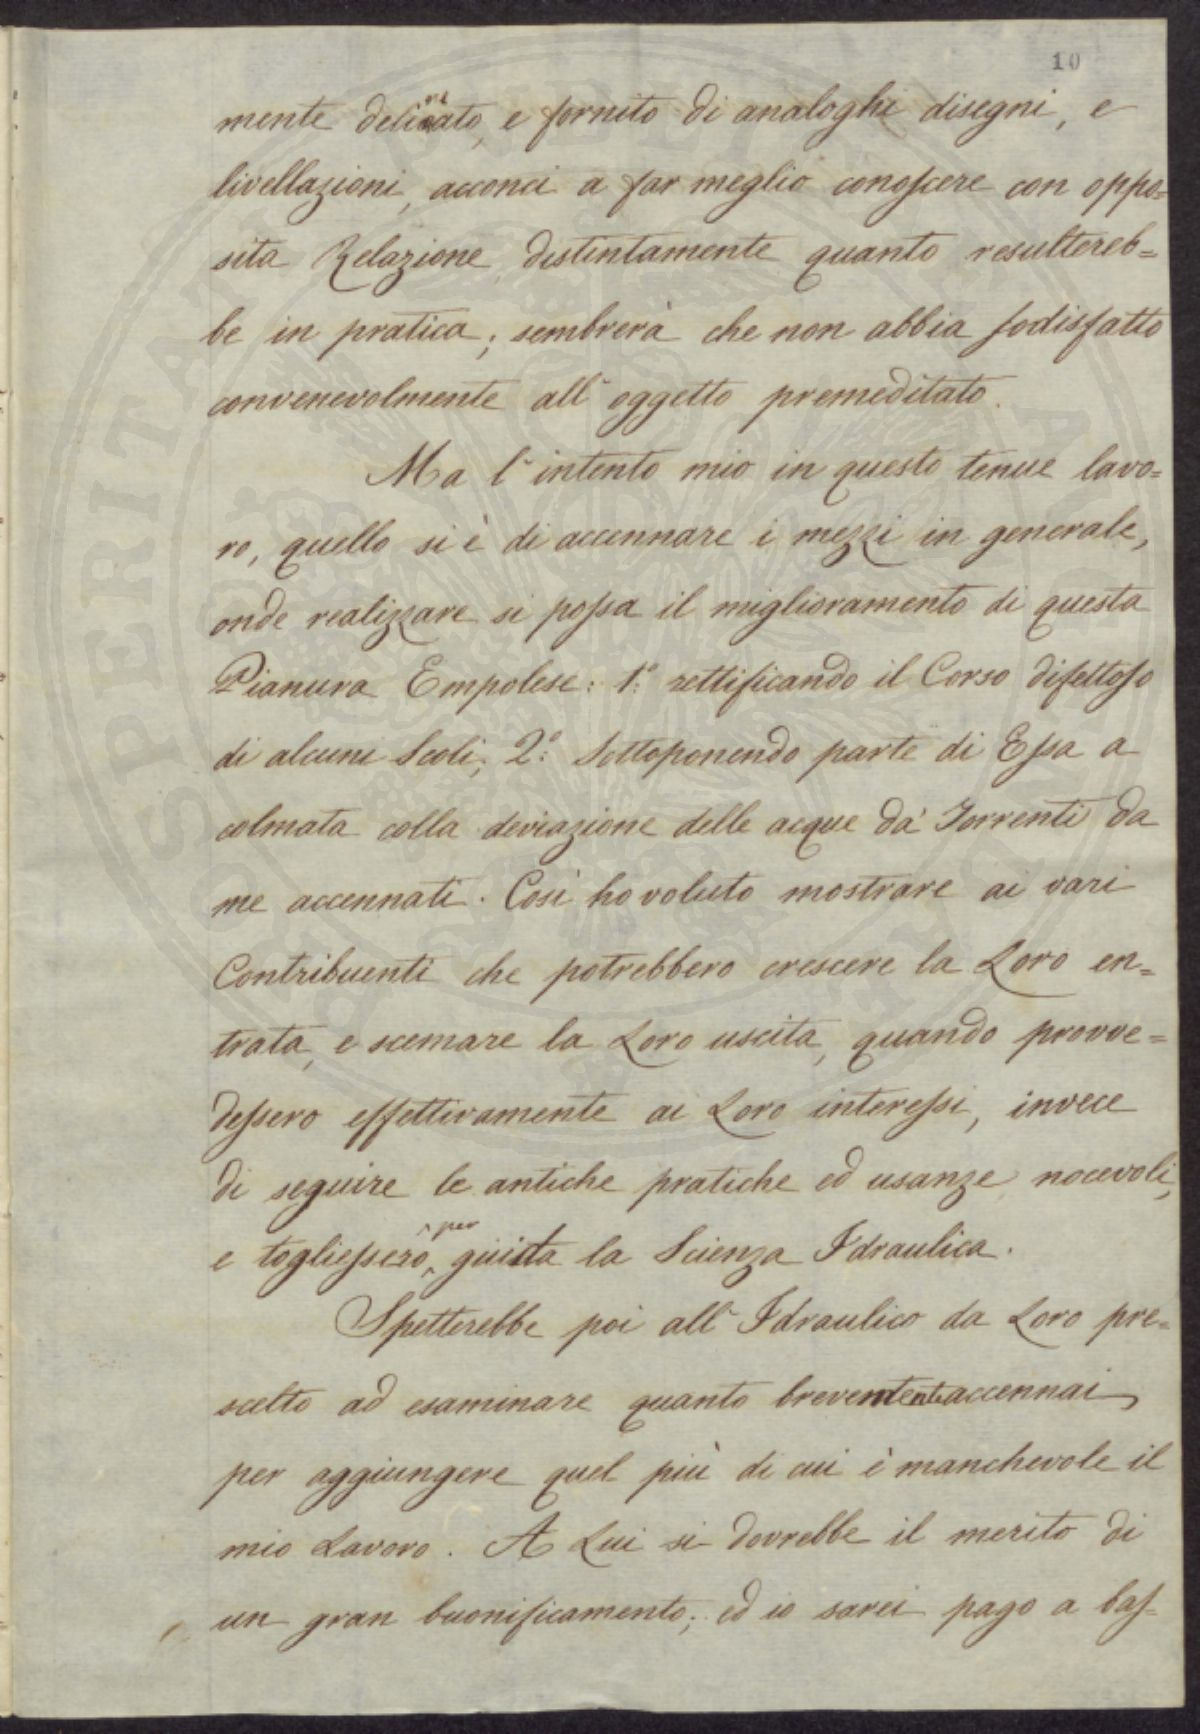 10
mente delineato, e fornito di analoghi disegni, e
livellazioni, acconci a far meglio conoscere con oppo=
sita Relazione, distintamente quanto resultereb=
be in pratica; sembrerà che non abbia sodisfatto
convenevolmente all'oggetto premeditato.
Ma l'intento mio in questo tenue lavo=
ro, quello si è di accennare i mezzi in generale,
onde realizzare si possa il miglioramento di questa
Pianura Empolese: 1.° rettificando il Corso difettoso
di alcuni Scoli; 2.° Sottoponendo parte di Essa a
colmata colla deviazione delle acque da' Torrenti da
me accennati. Così ho voluto mostrare ai vari
Contribuenti che potrebbero crescere la Loro en=
trata, e scemare la Loro uscita, quando provve=
dessero effettivamente ai Loro interessi, invece
di seguire le antiche pratiche ed usanze nocevoli,
e togliessero, per giusta la Scienza Idraulica.
Spetterebbe poi all'Idraulico da Loro pre=
scelto ad esaminare quanto brevemente accennai,
per aggiungere quel più di cui è manchevole il
mio Lavoro. A Lui si dovrebbe il merito di
un gran buonificamento; ed io sarei pago a bas=
PROSPERITATI